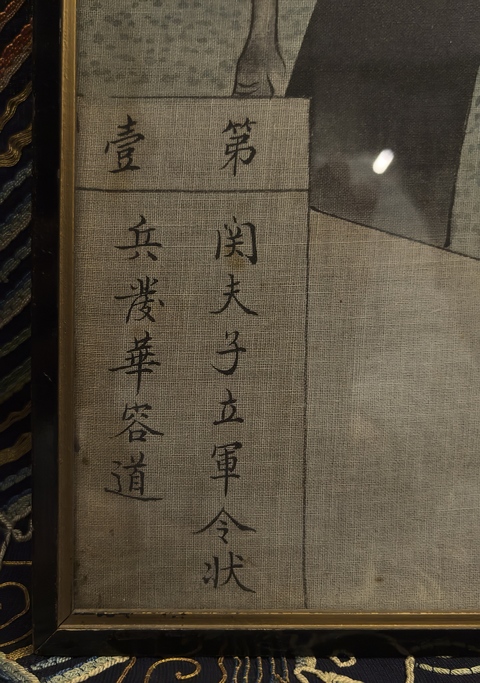 第壹
関夫子立軍令状
兵發華容道